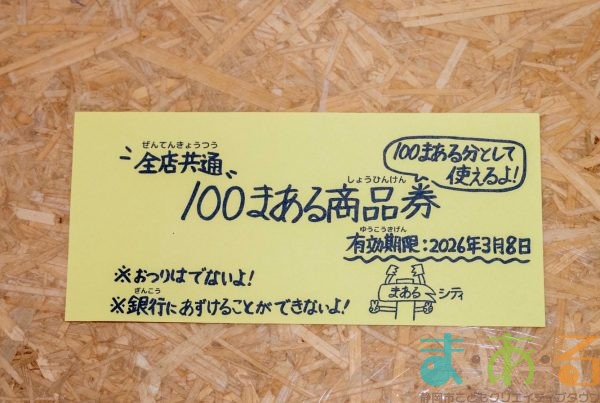 ぜんてんきょうつう
全店共通
100まある分として
使えるよ!
しょうひんけん
100まある商品券
ゆうこうきげん
有効期限:2026年3月8日
※おつりはでないよ!
ぎんこう
※銀行にあずけることができないよ!
まある
シティ
ま・あ・る
静岡市こどもクリエイティブタウン